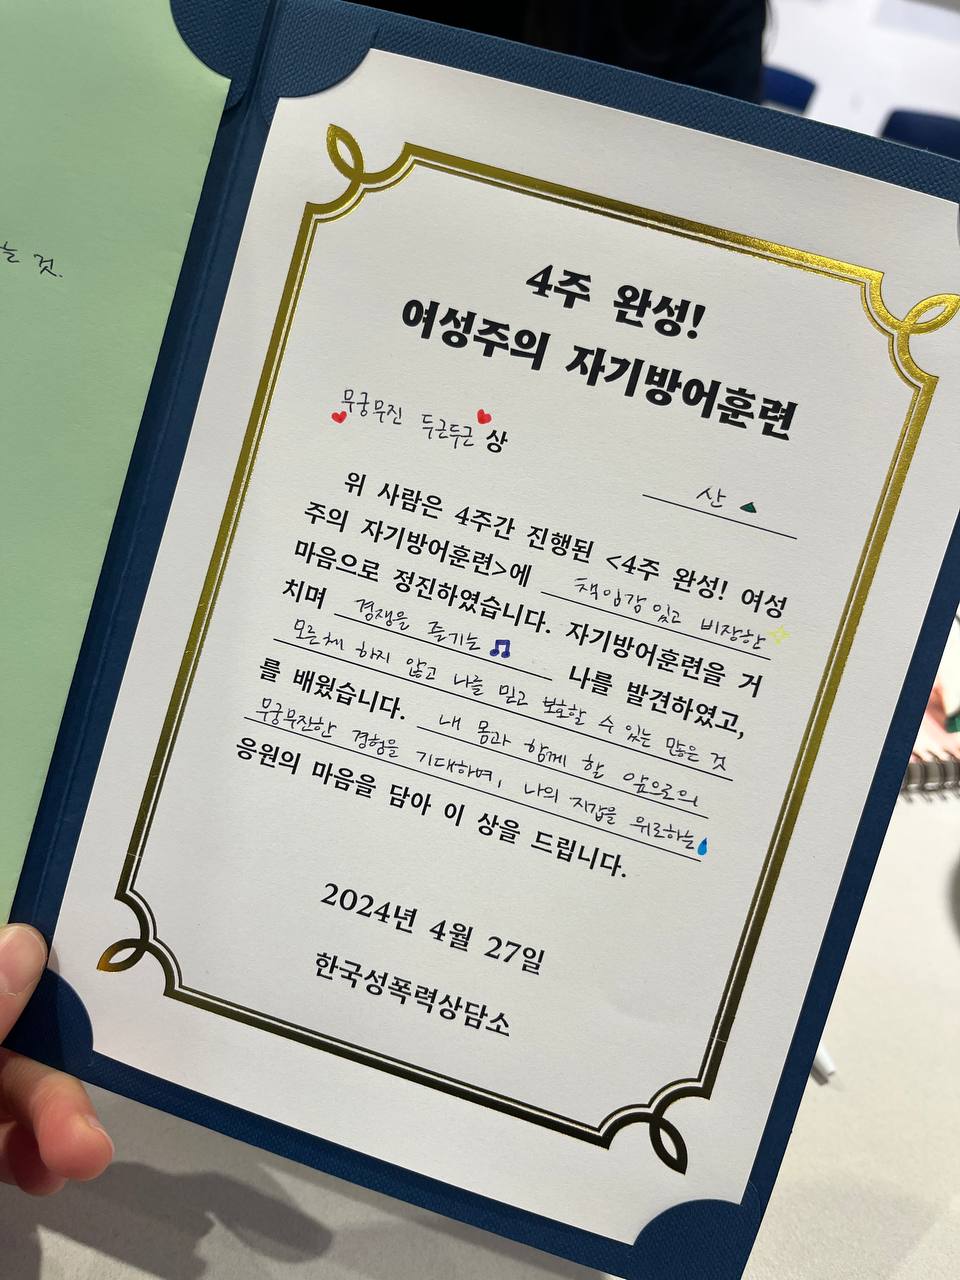 는 것.
4주 완성!
여성주의 자기방어훈련
무궁무진 두근두근 상
산
위 사람은 4주간 진행된 <4주 완성! 여성
주의 자기방어훈련>에 책임감 있고 비장한
마음으로 정진하였습니다. 자기방어훈련을 거
치며 경쟁을 즐기는 나를 발견하였고,
모른체 하지 않고 나를 믿고 보호할 수 있는 많은 것
를 배웠습니다. 내 몸과 함께 할 앞으로의
무궁무진한 경험을 기대하며, 나의 지갑을 위로하는
응원의 마음을 담아 이 상을 드립니다.
2024년 4월 27일
한국성폭력상담소